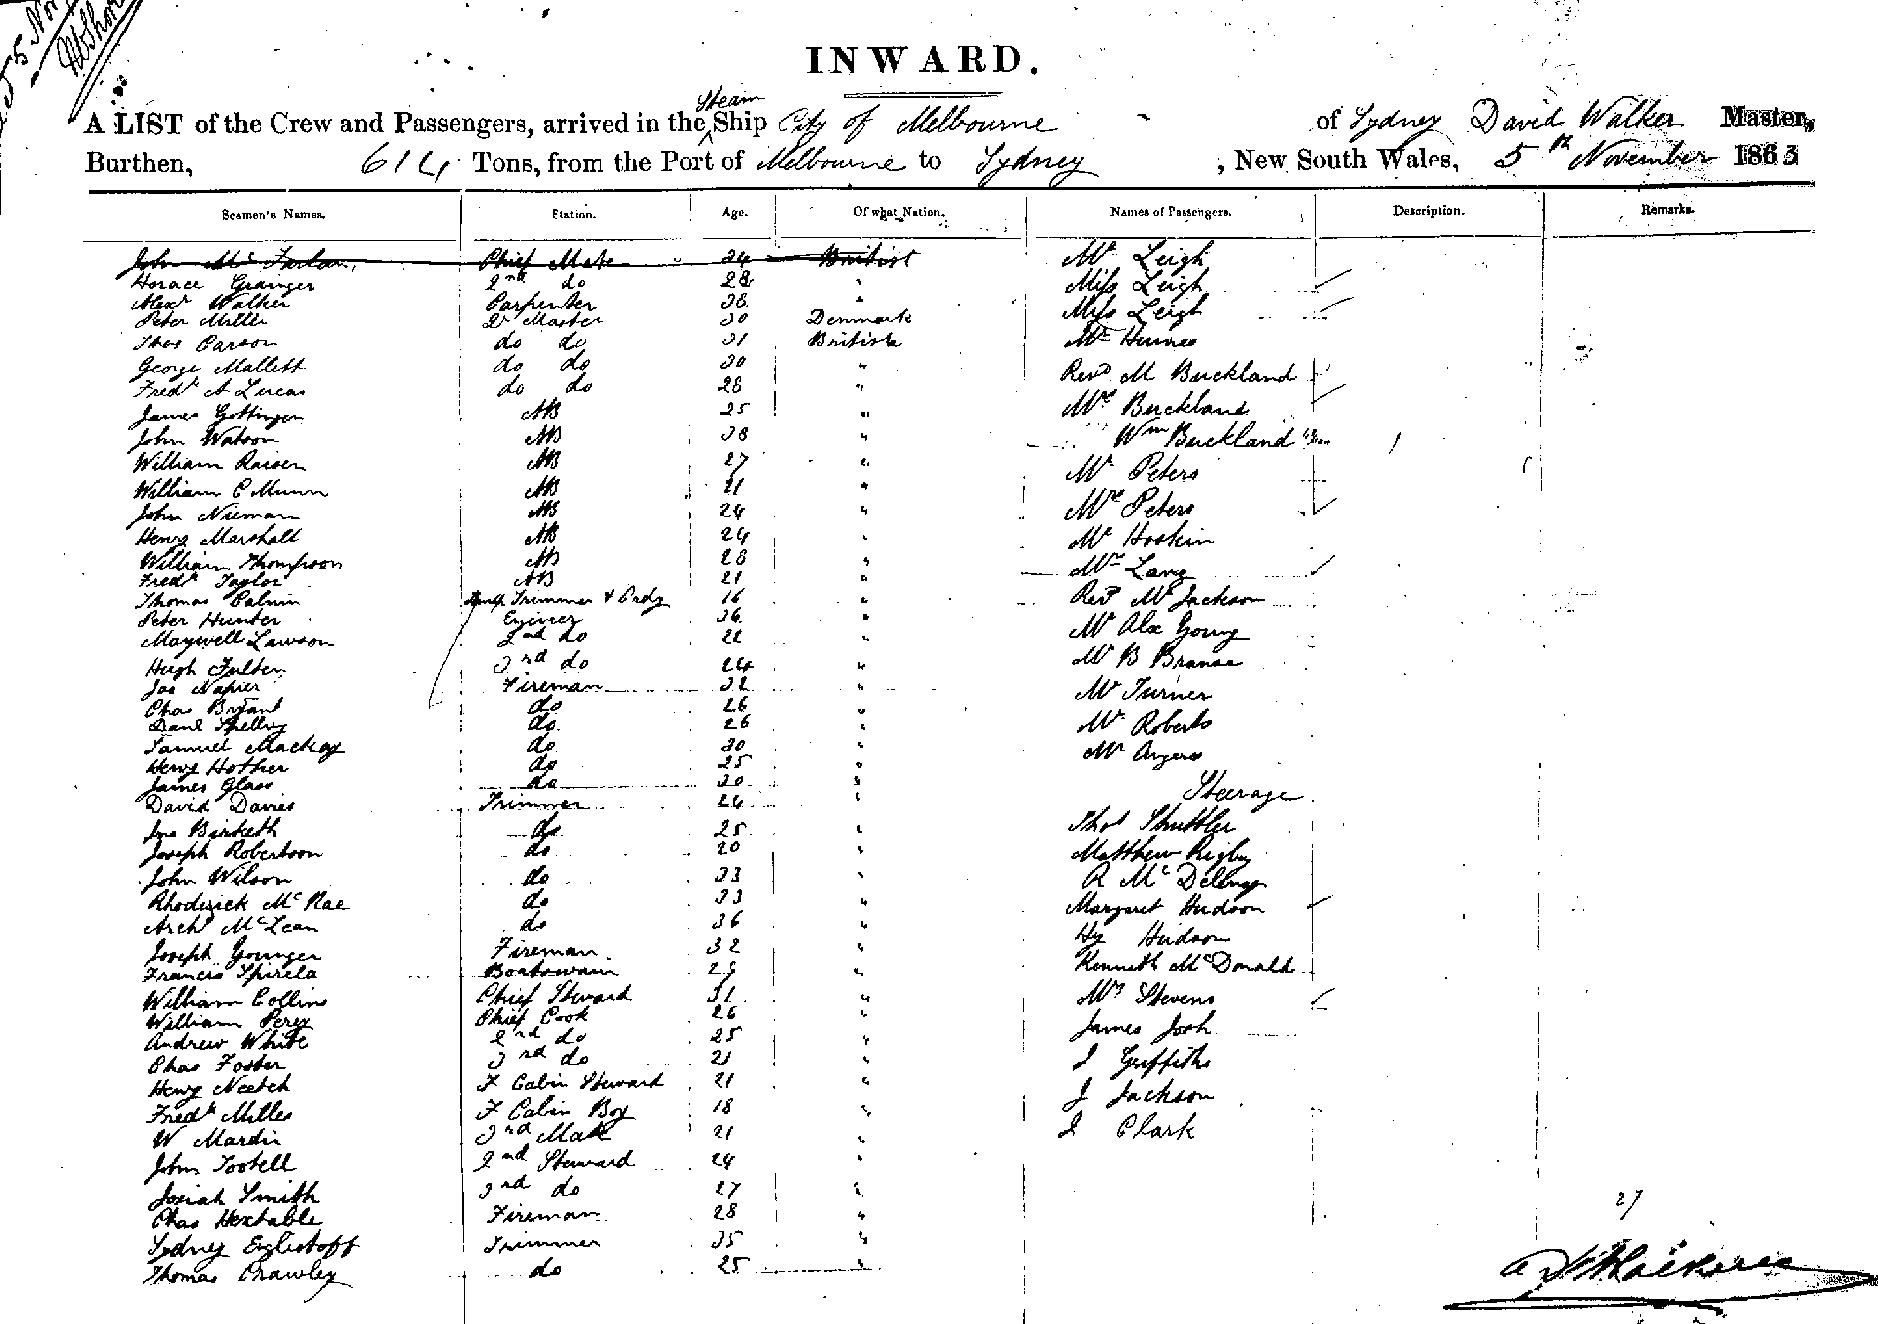 INWARD.
A LIST of the Crew and Passengers, arrived in the Steam Ship City of Melbourne of Sydney David Walker Master,
Burthen, 614 Tons, from the Port of Melbourne to Sydney, New South Wales, 5th November 1863
Seamen's Names. Station. Age. Of what Nation. Names of Passengers. Description. Remarks.
John McFarlan Chief Mate 34 British Mr Leigh
Horace Grainger 2nd do 28 " Miss Leigh
Alexr Walker Carpenter 38 " Miss Leigh
Peter Miller Qr Master 30 Denmark
Thos Carson do do 31 British Mr Humes
George Mallett do do 30 " Revd M Buckland
Fredk A Lucas do do 28 "
James Gottinger AB 25 " Mrs Buckland
John Watson AB 38 " Wm Buckland
William Raisen AB 27 " Mr Peters
William C Munn AB 21 " Mrs Peters
John Nieman AB 24 "
Henry Marshall AB 24 " Mr Hoskin
William Thompson AB 28 " Mrs Lang
Fredk Taylor AB 21 "
Thomas Calvin Lamp Trimmer & Ordy 16 " Revd Mr Jackson
Peter Hunter Enginer 36 " Mr Alx Young
Maxwell Lawson 2nd do 22 "
Hugh Fulton 3rd do 24 " Mr B Branse
Jas Napier Fireman 32 " Mr Turner
Chas Bryant do 26 "
Danl Spellvy do 26 " Mr Roberts
Samuel Mackay do 30 " Mr Angers
Henry Hother do 25 "
James Glass do 30 " Steerage
David Davies Trimmer 24 "
Jno Birketh do 25 " Thos Shuttler
Joseph Robertson do 20 " Matthew Rigby
John Wilson do 33 " R McDelvry
Rhoderick McRae do 33 " Margaret Hudson
Archd McLean do 36 "
Joseph Younger Fireman 32 " Hy Hudson
Francis Spirela Boatswain 29 " Kenneth McDonald
William Collins Chief Steward 31 " Mrs Stevens
William Perry Chief Cook 26 "
Andrew White 2nd do 25 " James Josh
Chas Foster 3rd do 21 " J Griffiths
Henry Neetch F Cabin Steward 21 " J Jackson
Fredk Milles F Cabin Boy 18 "
W Mardin 3rd Mate 21 " J Clark
John Tootell 2nd Steward 24 "
Josiah Smith 3rd do 27 "
Chas Hextable Fireman 28 "
Sydney Eglestoff Trimmer 35 "
Thomas Crawley do 25 "
27